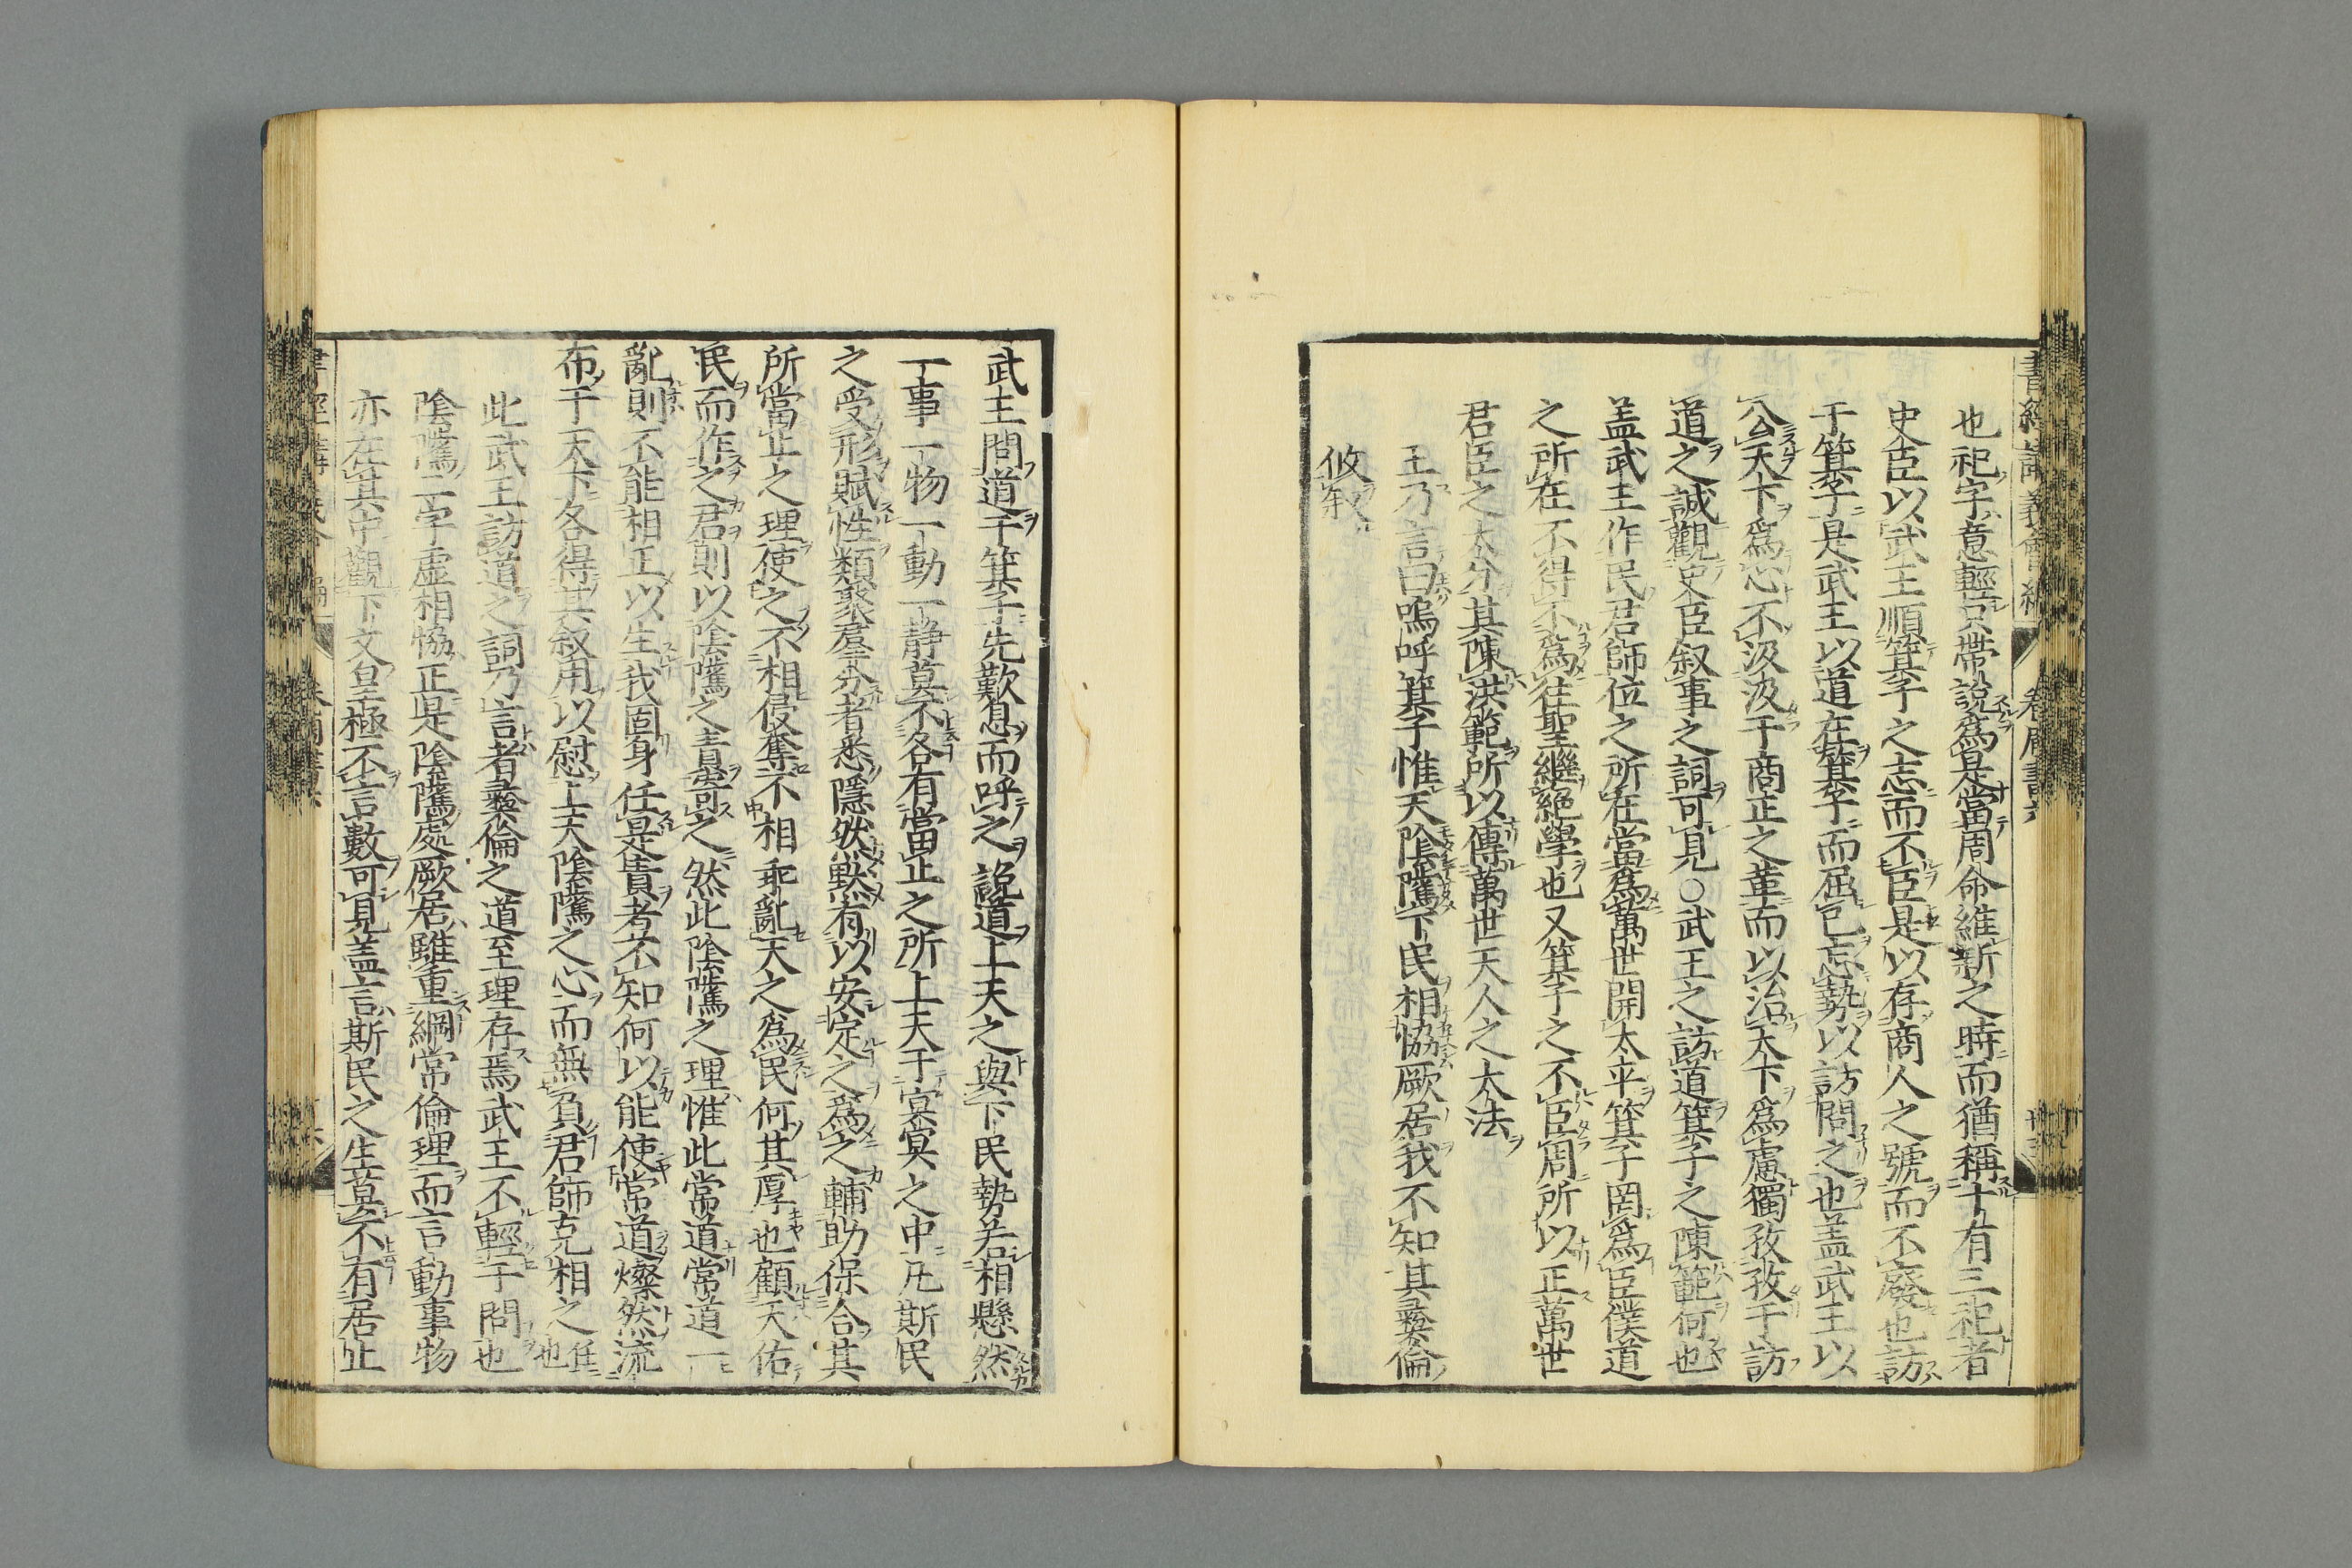 也祀字意輕只帶說爲是當周命維新之時而猶稱十有三祀者
史臣以武王順箕子之志而不臣是以存商人之號而不廢也訪
于箕子是武王以道在箕子而屈己忘勢以訪問之也盖武王以
公天下爲心不汲汲于商正之革而以治天下爲慮獨孜孜于訪
道之誠觀史臣叙事之詞可見○武王之訪道箕子之陳範何也
盖武王作民君師位之所在當爲萬世開太平箕子罔爲臣僕道
之所在不得不爲往聖繼絕學也又箕子之不臣周所以正萬世
君臣之大分其陳洪範所以傳萬世天人之大法
王乃言曰嗚呼箕子惟天陰騭下民相恊厥居我不知其彝倫
攸敘
武王問道于箕子先歎息而呼之說道上天之與下民勢若相懸然
一事一物一動一静莫不各有當止之所上天于冥冥之中凡斯民
之受形賦性類聚羣分者悉隱然黙有以安定之爲之輔助保合其
所當止之理使之不相侵奪不相乖亂天之爲民何其厚也顧天佑
民而作之君則以陰騭之責寄之然此陰騭之理惟此常道常道一
亂則不能相正以生我固身任是責者不知何以能使常道燦然流
布于天下各得其叙用以慰上天陰騭之心而無負君師克相之任也
此武王訪道之詞乃言者彝倫之道至理存焉武王不輕于問也
陰騭二字虛相恊正是陰騭處厥居雖重綱常倫理而言動事物
亦在其中觀下文皇極不言數可見盖言斯民之生莫不有居止